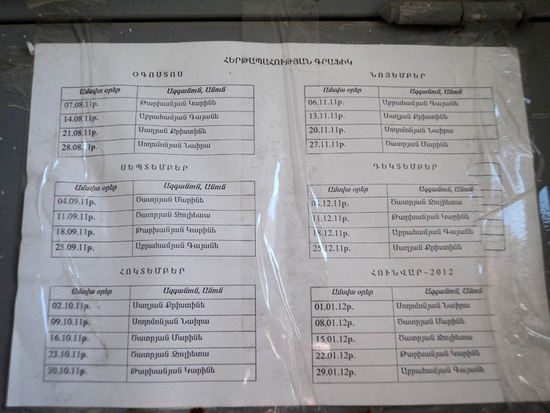 ՀԵՐԹԱՊԱՀՈՒԹՅԱՆ ԳՐԱՖԻԿ
ՕԳՈՍՏՈՍ
Ամսվա օրեր Ազգանուն, Անուն
07.08.11թ. Թարխանյան Կարինե
14.08.11թ. Աբրահամյան Գայանե
21.08.11թ. Սաղյան Քրիստինե
28.08.11թ. Սողոմոնյան Նաիրա
ՍԵՊՏԵՄԲԵՐ
Ամսվա օրեր Ազգանուն, Անուն
04.09.11թ. Ծատրյան Մարինե
11.09.11թ. Ծատրյան Ջուլիետա
18.09.11թ. Թարխանյան Կարինե
25.09.11թ. Աբրահամյան Գայանե
ՀՈԿՏԵՄԲԵՐ
Ամսվա օրեր Ազգանուն, Անուն
02.10.11թ. Սաղյան Քրիստինե
09.10.11թ. Սողոմոնյան Նաիրա
16.10.11թ. Ծատրյան Մարինե
23.10.11թ. Ծատրյան Ջուլիետա
30.10.11թ. Թարխանյան Կարինե
ՆՈՅԵՄԲԵՐ
Ամսվա օրեր Ազգանուն, Անուն
06.11.11թ. Աբրահամյան Գայանե
13.11.11թ. Սաղյան Քրիստինե
20.11.11թ. Սողոմոնյան Նաիրա
27.11.11թ. Ծատրյան Մարինե
ԴԵԿՏԵՄԲԵՐ
Ամսվա օրեր Ազգանուն, Անուն
04.12.11թ. Ծատրյան Ջուլիետա
11.12.11թ. Թարխանյան Կարինե
18.12.11թ. Աբրահամյան Գայանե
25.12.11թ. Սաղյան Քրիստինե
ՀՈՒՆՎԱՐ-2012
Ամսվա օրեր Ազգանուն, Անուն
01.01.12թ. Սողոմոնյան Նաիրա
08.01.12թ. Ծատրյան Մարինե
15.01.12թ. Ծատրյան Ջուլիետա
22.01.12թ. Թարխանյան Կարինե
29.01.12թ. Աբրահամյան Գայանե